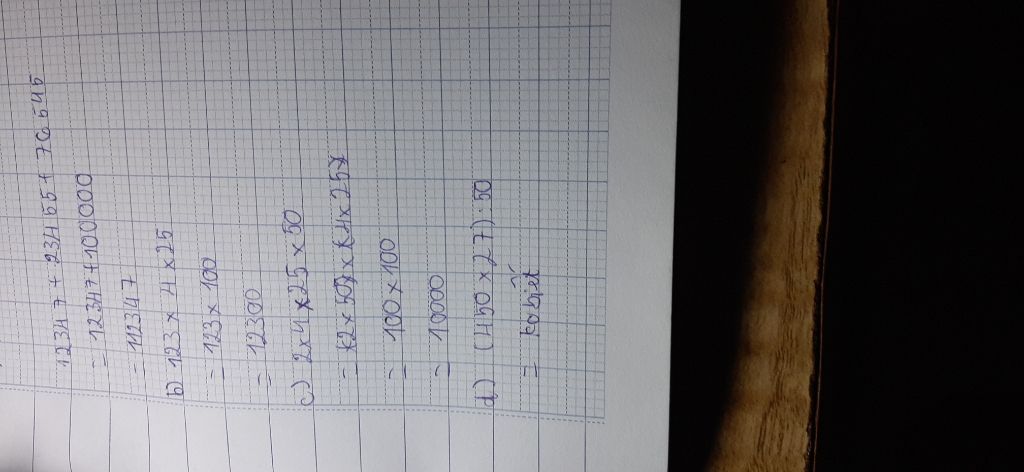 12347 + 23455 + 76545
= 12347 + 100000
= 112347
b) 123 x 4 x 25
= 123 x 100
= 12300
c) 2 x 4 x 25 x 50
= (2 x 50) x (4 x 25)
= 100 x 100
= 10000
d) (450 x 27) : 50
=